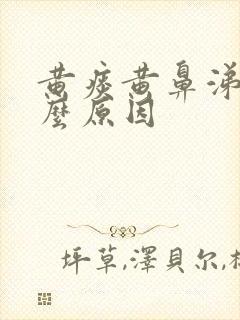 黄痰黄鼻涕
麼原因
坪草,澤貝尔,